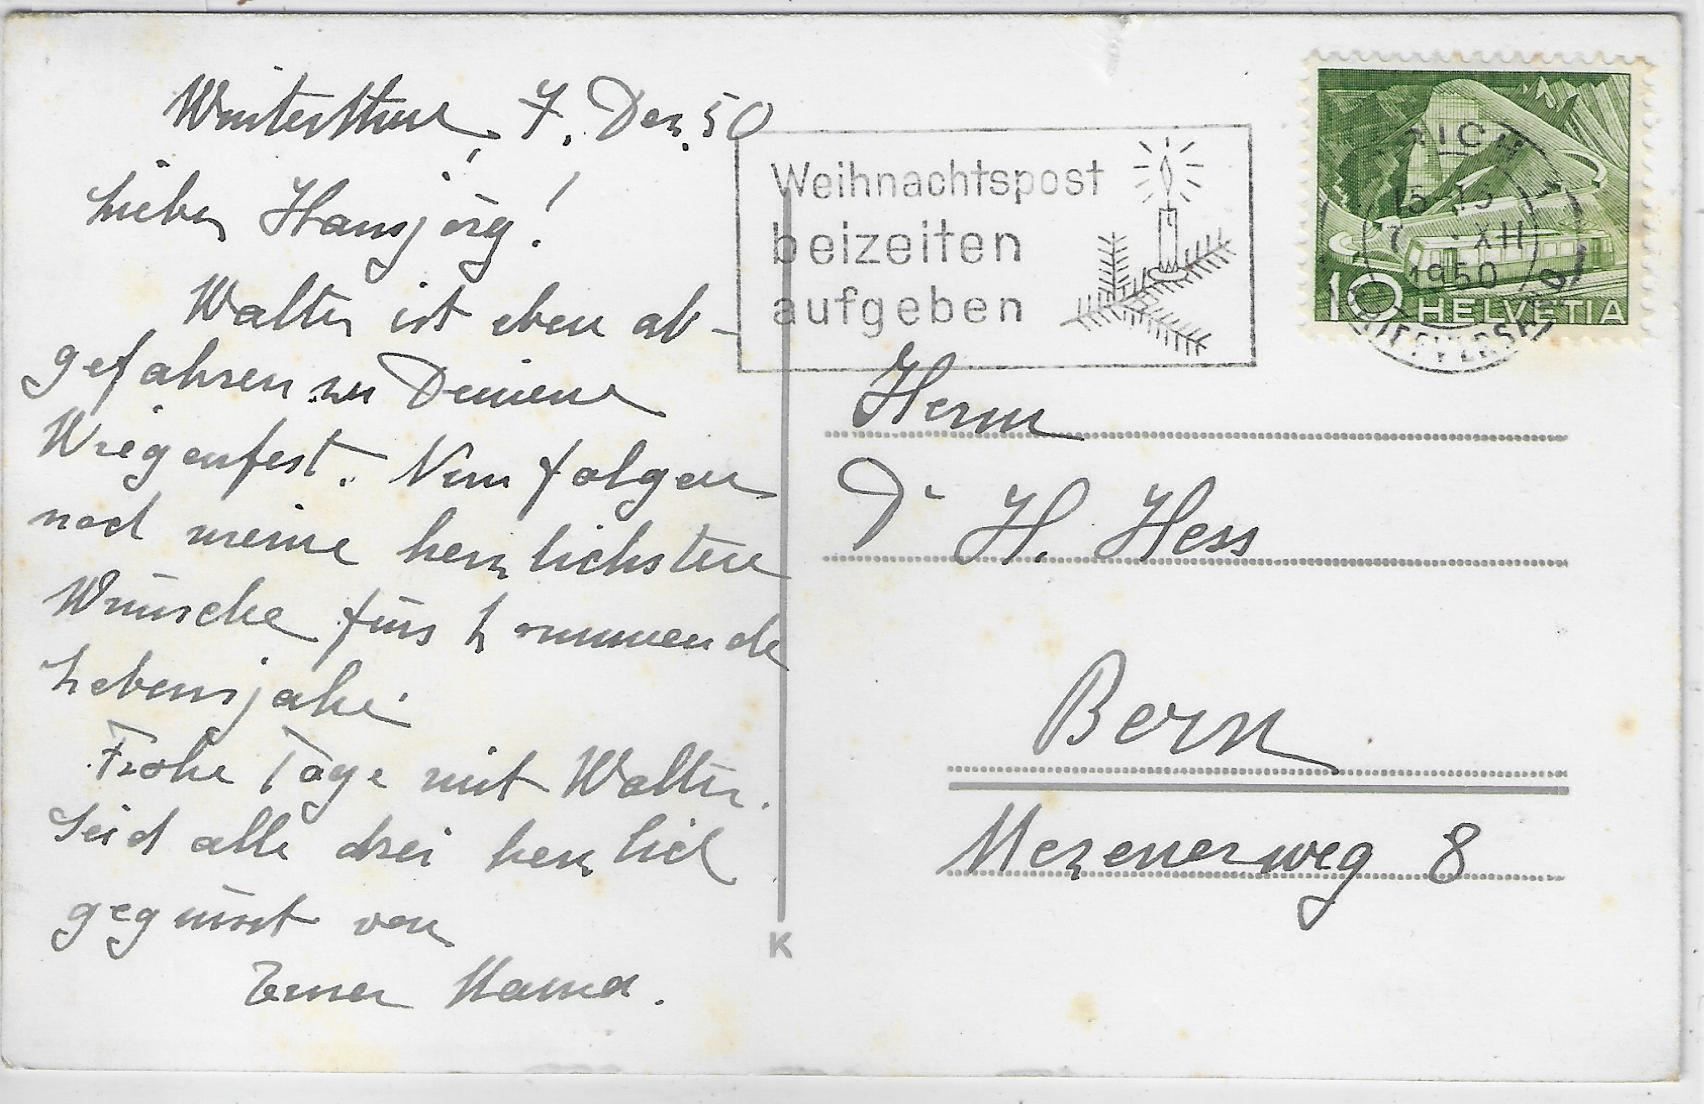 Winterthur, 7. Dez. 50
Lieber Hansjörg!
Walter ist eben ab-
gefahren zu Deinem
Wiegenfest. Nun folgen
noch meine herzlichsten
Wünsche fürs kommende
Lebensjahr.
Frohe Tage mit Walter.
Seid alle drei herzlich
gegrüsst von
Eurer Mama.
Weihnachtspost
beizeiten
aufgeben
15
7 XII
1950
10 HELVETIA
Herrn
Dr H. Hess
Bern
Mezenerweg 8
K